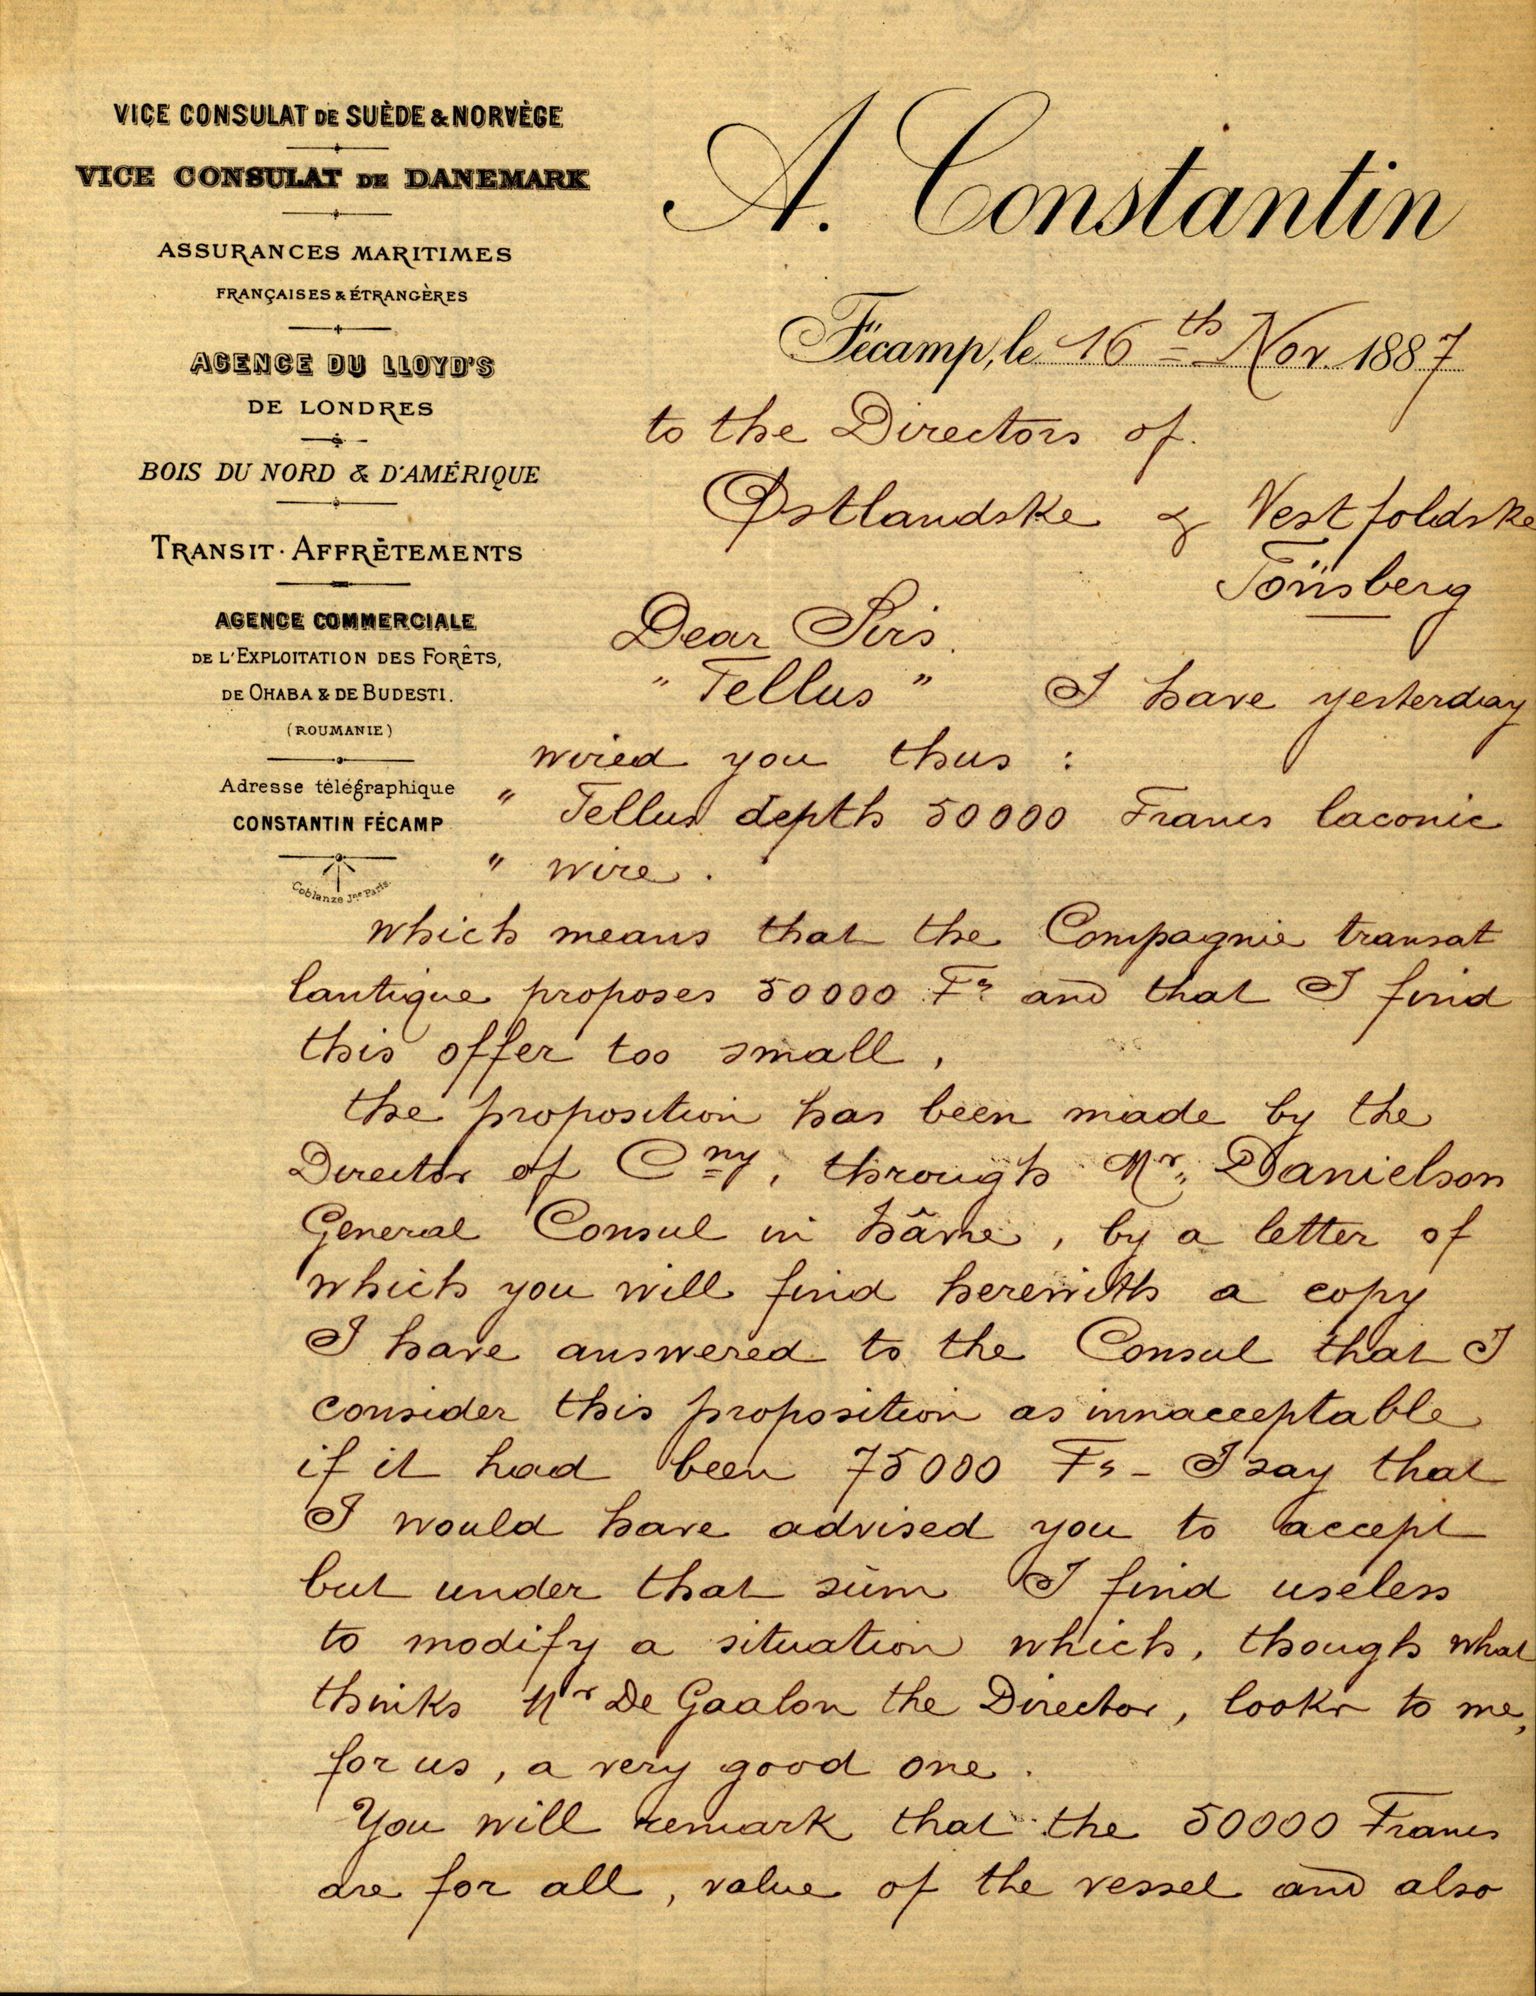 VICE CONSULAT DE SUÈDE & NORVÈGE
VICE CONSULAT DE DANEMARK
ASSURANCES MARITIMES
FRANÇAISES & ÉTRANGÈRES
AGENCE DU LLOYD'S
DE LONDRES
BOIS DU NORD & D'AMÉRIQUE
TRANSIT · AFFRÈTEMENTS
AGENCE COMMERCIALE
DE L'EXPLOITATION DES FORÊTS,
DE OHABA & DE BUDESTI.
(ROUMANIE)
Adresse télégraphique
CONSTANTIN FÉCAMP
Coblanze Jne Paris.
A. Constantin
Fécamp, le 16th Nov. 1887
to the Directors of.
Østlandske & Vestfoldske
Tönsberg
Dear Sirs.
"Tellus" I have yesterday
wired you thus :
" Tellus depth 50000 Francs laconic
" wire .
which means that the Compagnie transat
lantique proposes 50000 Fs and that I find
this offer too small,
the proposition has been made by the
Director of Cny, through Mr. Danielson
General Consul in hâvre, by a letter of
which you will find herewith a copy
I have answered to the Consul that I
consider this proposition as innacceptable
if it had been 75000 Fs - I say that
I would have advised you to accept
but under that sum I find useless
to modify a situation which, though what
thinks Mr De Gaalon the Director, looks to me,
for us, a very good one.
You will remark that the 50000 Francs
are for all, value of the vessel and also